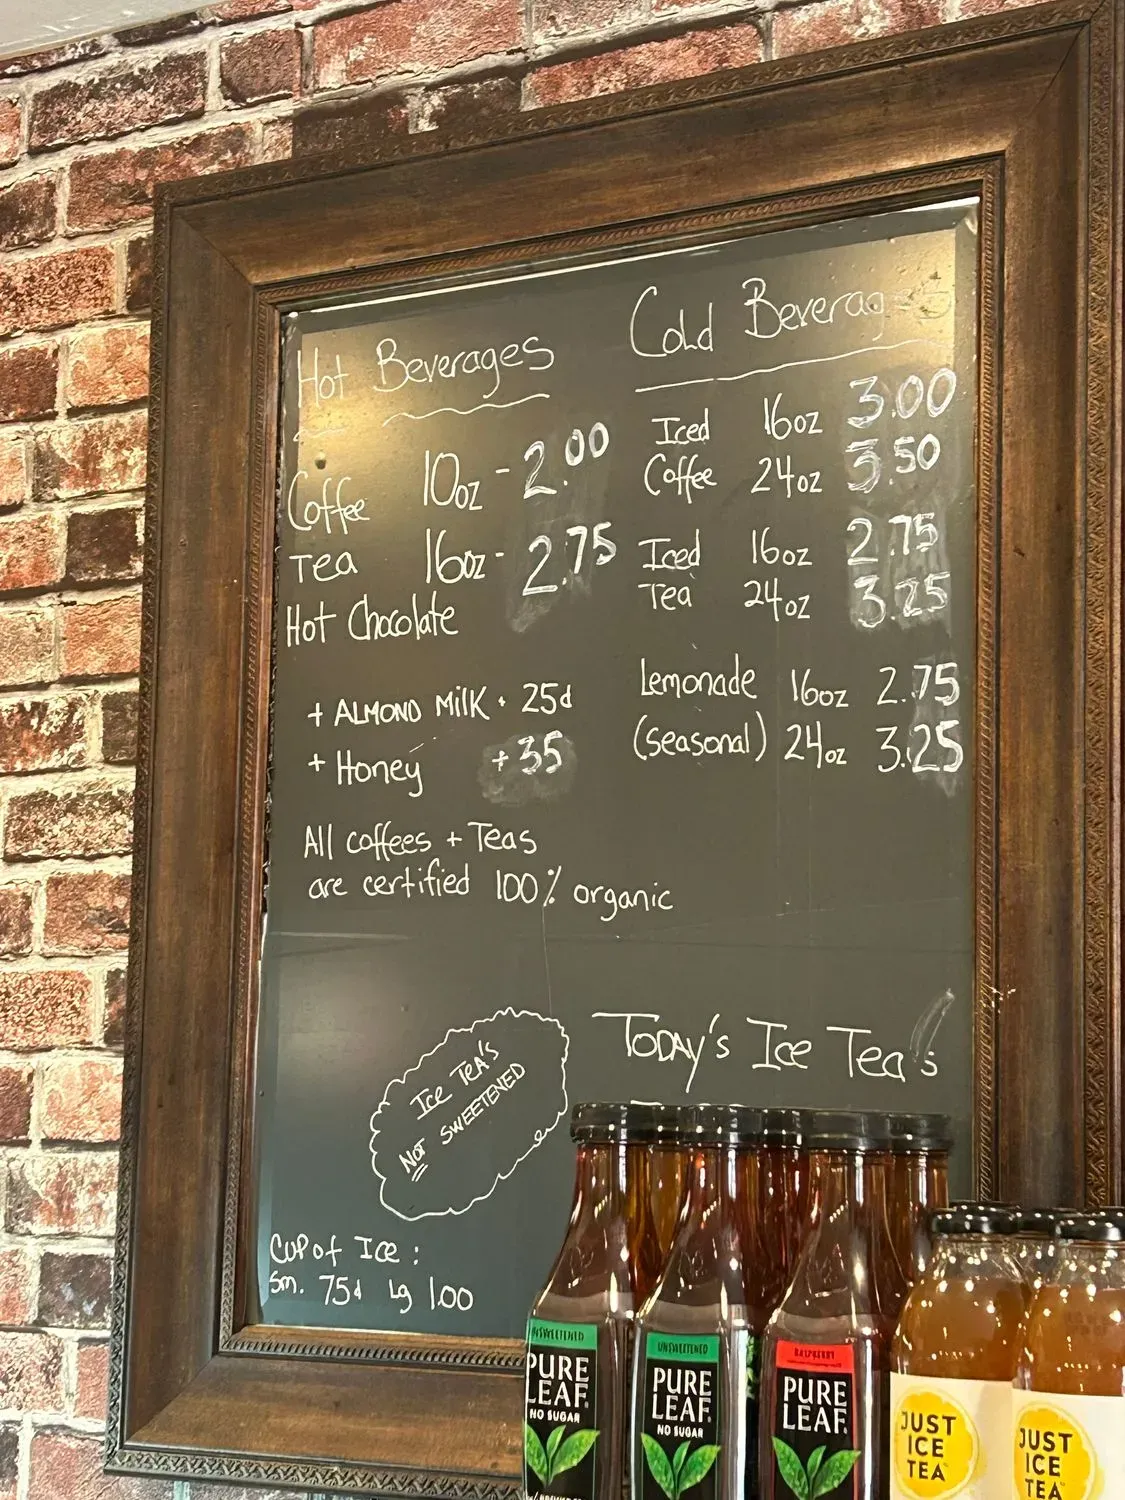 Hot Beverages
Coffee 10oz - 2.00
Tea 16oz - 2.75
Hot Chocolate
+ ALMOND MilK + 25¢
+ Honey +35
All coffees + Teas
are certified 100% organic
Cold Beverages
Iced 16oz 3.00
Coffee 24oz 3.50
Iced 16oz 2.75
Tea 24oz 3.25
Lemonade 16oz 2.75
(seasonal) 24oz 3.25
Ice TEA'S
Not SWEETENED
TODAY'S Ice Tea's
CUP of Ice:
Sm. 75¢ Lg 1.00
UNSWEETENED
PURE
LEAF
NO SUGAR
UNSWEETENED
PURE
LEAF
NO SUGAR
RASPBERRY
PURE
LEAF
JUST
ICE
TEA
JUST
ICE
TEA